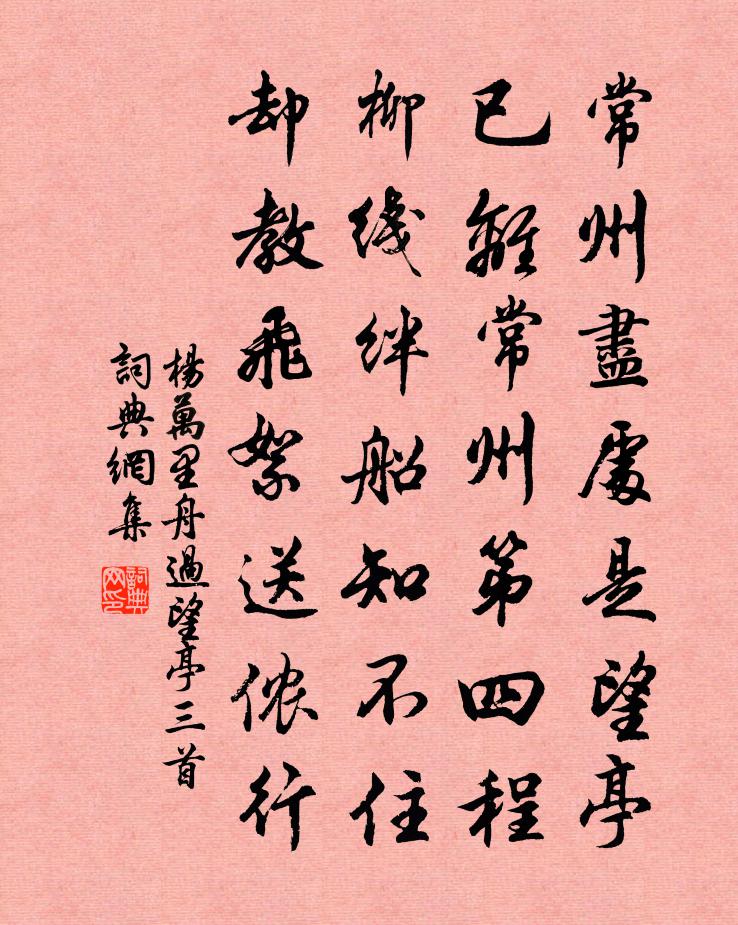 常州盡處是望亭
已離常州第四程
柳线絆船知不住
却教飛絮送侬行
楊萬里舟過望亭三首
詞典網集
詞典网印